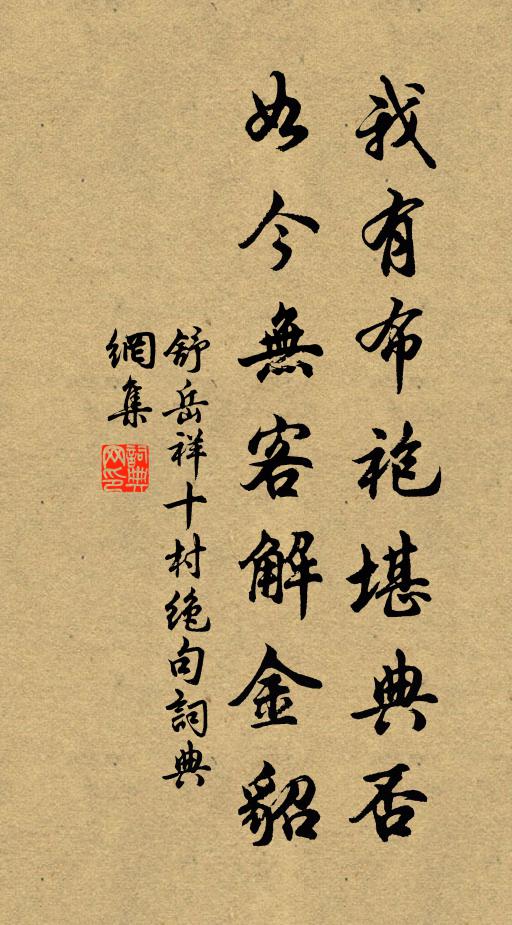 我有布袍堪典否
如今無客解金貂
舒岳祥十村绝句詞典
網集
詞典
网印